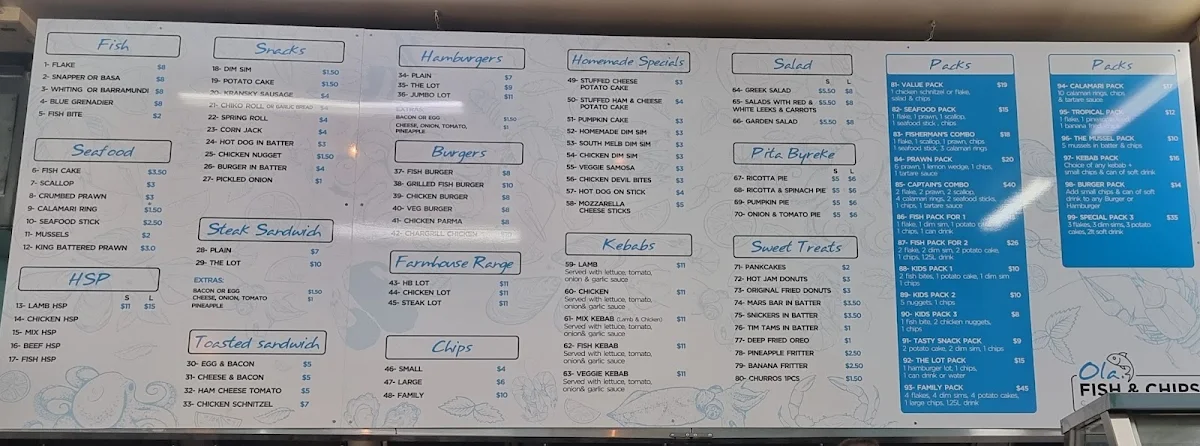 Fish
1- FLAKE $8
2- SNAPPER OR BASA $8
3- WHITING OR BARRAMUNDI $8
4- BLUE GRENADIER $8
5- FISH BITE $2
Seafood
6- FISH CAKE $3.50
7- SCALLOP $3
8- CRUMBED PRAWN $3
9- CALAMARI RING $1.50
10- SEAFOOD STICK $2.50
11- MUSSELS $2
12- KING BATTERED PRAWN $3.0
HSP
S L
13- LAMB HSP $11 $15
14- CHICKEN HSP
15- MIX HSP
16- BEEF HSP
17- FISH HSP
Snacks
18- DIM SIM $1.50
19- POTATO CAKE $1.50
20- KRANSKY SAUSAGE $4
21- CHIKO ROLL OR GARLIC BREAD $4
22- SPRING ROLL $4
23- CORN JACK $4
24- HOT DOG IN BATTER $3
25- CHICKEN NUGGET $1.50
26- BURGER IN BATTER $4
27- PICKLED ONION $1
Steak Sandwich
28- PLAIN $7
29- THE LOT $10
EXTRAS:
BACON OR EGG $1.50
CHEESE, ONION, TOMATO $1
PINEAPPLE
Toasted sandwich
30- EGG & BACON $5
31- CHEESE & BACON $5
32- HAM CHEESE TOMATO $5
33- CHICKEN SCHNITZEL $7
Hamburgers
34- PLAIN $7
35- THE LOT $9
36- JUMBO LOT $11
EXTRAS:
BACON OR EGG $1.50
CHEESE, ONION, TOMATO, $1
PINEAPPLE
Burgers
37- FISH BURGER $8
38- GRILLED FISH BURGER $10
39- CHICKEN BURGER $8
40- VEG BURGER $8
41- CHICKEN PARMA $8
42- CHARGRILL CHICKEN $10
Farmhouse Range
43- HB LOT $11
44- CHICKEN LOT $11
45- STEAK LOT $11
Chips
46- SMALL $4
47- LARGE $6
48- FAMILY $10
Homemade Specials
49- STUFFED CHEESE $3
POTATO CAKE
50- STUFFED HAM & CHEESE $4
POTATO CAKE
51- PUMPKIN CAKE $3
52- HOMEMADE DIM SIM $3
53- SOUTH MELB DIM SIM $3
54- CHICKEN DIM SIM $3
55- VEGGIE SAMOSA $3
56- CHICKEN DEVIL BITES $3
57- HOT DOG ON STICK $4
58- MOZZARELLA $5
CHEESE STICKS
Kebabs
59- LAMB $11
Served with lettuce, tomato,
onion & garlic sauce
60- CHICKEN $11
Served with lettuce, tomato,
onion & garlic sauce
61- MIX KEBAB (Lamb & Chicken) $11
Served with lettuce, tomato,
onion& garlic sauce
62- FISH KEBAB $11
Served with lettuce, tomato,
onion& garlic sauce
63- VEGGIE KEBAB $11
Served with lettuce, tomato,
onion& garlic sauce
Salad
S L
64- GREEK SALAD $5.50 $8
65- SALADS WITH RED & $5.50 $8
WHITE LEEKS & CARROTS
66- GARDEN SALAD $5.50 $8
Pita Byreke
S L
67- RICOTTA PIE $5 $6
68- RICOTTA & SPINACH PIE $5 $6
69- PUMPKIN PIE $5 $6
70- ONION & TOMATO PIE $5 $6
Sweet Treats
71- PANKCAKES $2
72- HOT JAM DONUTS $3
73- ORIGINAL FRIED DONUTS $3
74- MARS BAR IN BATTER $3.50
75- SNICKERS IN BATTER $3.50
76- TIM TAMS IN BATTER $1
77- DEEP FRIED OREO $1
78- PINEAPPLE FRITTER $2.50
79- BANANA FRITTER $2.50
80- CHURROS 1PCS $1.50
Packs
81- VALUE PACK $19
1 chicken schnitzel or flake,
salad & chips
82- SEAFOOD PACK $15
1 flake, 1 prawn, 1 scallop,
1 seafood stick, chips
83- FISHERMAN'S COMBO $18
1 flake, 1 scallop, 1 prawn, chips
1 seafood stick, 3 calamari rings
84- PRAWN PACK $20
6 prawn, 1 lemon wedge, 1 chips,
1 tartare sauce
85- CAPTAIN'S COMBO $40
2 flake, 2 prawn, 2 scallop,
4 calamari rings, 2 seafood sticks,
1 chips, 1 tartare sauce
86- FISH PACK FOR 1
1 flake, 1 dim sim, 1 potato cake,
1 chips, 1 can drink
87- FISH PACK FOR 2 $26
2 flake, 2 dim sim, 2 potato cake,
1 chips, 1.25L drink
88- KIDS PACK 1 $10
2 fish bites, 1 potato cake, 1 dim sim
1 chips
89- KIDS PACK 2 $10
5 nuggets, 1 chips
90- KIDS PACK 3 $8
1 fish bite, 2 chicken nuggets,
1 chips
91- TASTY SNACK PACK $9
2 potato cake, 2 dim sim, 1 chips
92- THE LOT PACK $15
1 hamburger lot, 1 chips,
1 can drink or water
93- FAMILY PACK $45
4 flakes, 4 dim sims, 4 potato cakes,
1 large chips, 1.25L drink
Packs
94- CALAMARI PACK $17
10 calamari rings, chips
& tartare sauce
95- TROPICAL PACK $12
1 flake, 1
1 banana
96- THE MUSSEL PACK $10
5 mussels in batter & chips
97- KEBAB PACK $16
Choice of any kebab +
small chips & can of soft drink
98- BURGER PACK $14
Add small chips & can of soft
drink to any Burger or
Hamburger
99- SPECIAL PACK 3 $35
3 flakes, 3 dim sims, 3 potato
cakes, 2lt soft drink
Ola
FISH & CHIPS